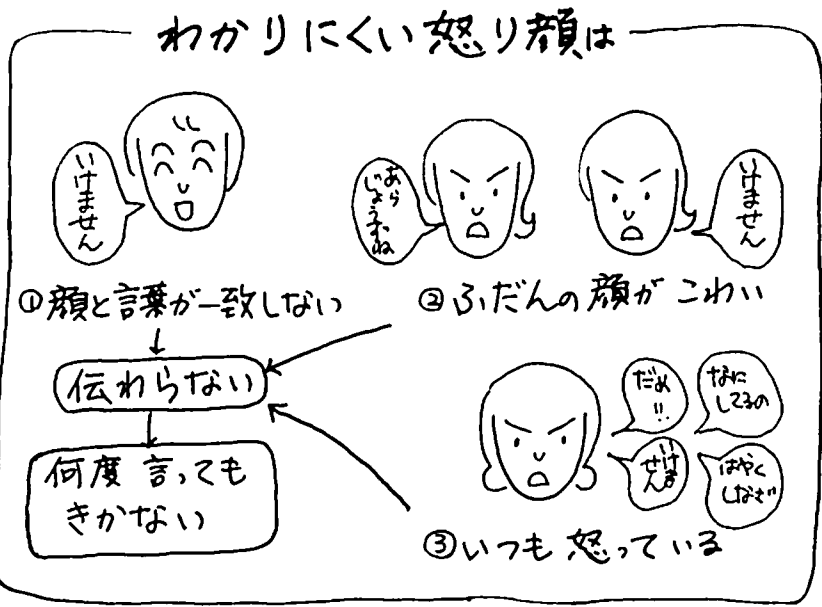 わかりにくい怒り顔は
いけません
あら
じょうずね
いけません
①顔と言葉が一致しない
②ふだんの顔がこわい
伝わらない
何度言っても
きかない
だめ
!!
なに
してるの
いけま
せん
はやく
しなさい
③いつも怒っている